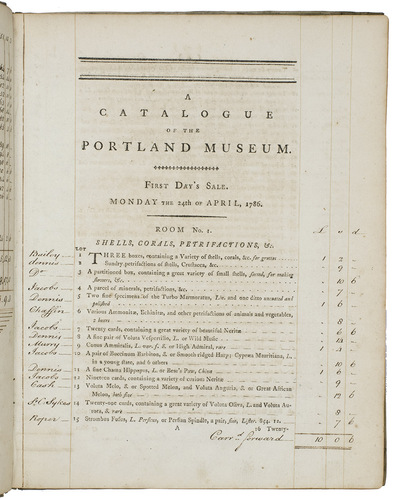 A
CATALOGUE
OF THE
PORTLAND MUSEUM.
First Day's Sale.
Monday the 24th of APRIL, 1786.
ROOM No. 1.
SHELLS, CORALS, PETRIFACTIONS, &c.
LOT
Bailey 1 THREE boxes, containing a Variety of shells, corals, &c. for grottos 1 2 -
Dennis 2 Sundry petrifactions of shells, Crustacea, &c. - 9 -
Do 3 A partitioned box, containing a great variety of small shells, sorted, for making
flowers, &c. - 10 6
Jacobs 4 A parcel of minerals, petrifactions, &c. - 7 -
Dennis 5 Two fine specimens of the Turbo Marmoratus, Lin. and one ditto uncoated and
polished 1 6 -
Chaffin 6 Various Ammonitæ, Echinitæ, and other petrifactions of animals and vegetables,
2 boxes - 8 -
Jacobs 7 Twenty cards, containing a great variety of beautiful Neritæ - 6
Dennis 8 A fine pair of Voluta Vespertilio, L. or Wild Music - 13 -
Murry 9 Conus Ammiralis, L. var. or High Admiral, rare 1 -
Jacobs 10 A pair of Buccinum Harbiton, S. or Smooth ridged Harp; Cypræa Mauritiana, L.
in a young state, and 6 others 1 6
Dennis 11 A fine Chama Hippopus, L. or Bear's Paw, China 1 6
Jacobs 12 Nineteen cards, containing a variety of curious Neritæ - 6 -
Cash 13 Voluta Melo, S. or Spotted Melon, and Voluta Anguria, S. or Great African
Melon, both fine - 12 6
14 Twenty-one cards, containing a great variety of Voluta Oliva, L. and Voluta
rora, &c. rare - 8 -
Roper 15 Strombus Fusus, L. Perseus, or Persian Spindle, a pair, fine, Lister. 854. 12. - 7 6
A
16 Twenty-
Carrd forward 10 0 6